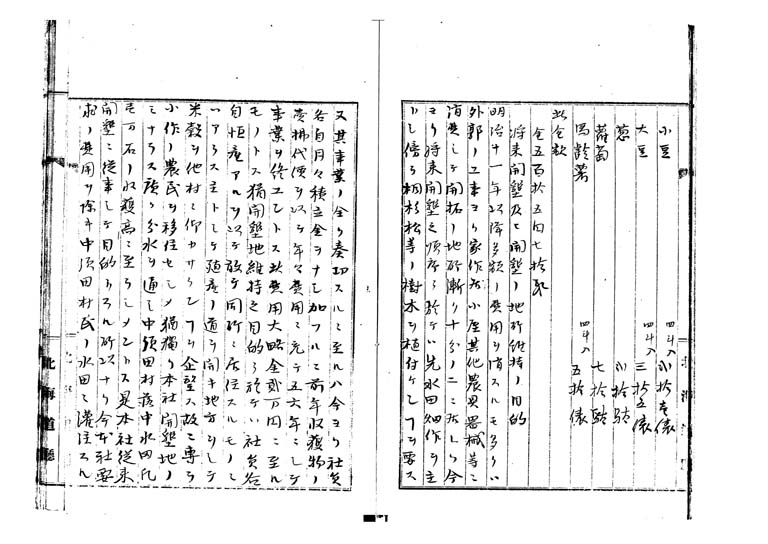 小豆 四斗入 弐拾壱俵
大豆 四斗入 三拾五俵
葱 弐拾駄
蘿蔔 七拾駄
馬齢薯 四斗入 五拾俵
此金数
金五百拾五円七拾銭
将来開墾及ヒ開墾ノ地所維持ノ目的
明治十一年以降多額ノ費用ヲ消スルモ多クハ
外郭ノ工事ヨリ家作 小屋其他農具器械等ニ
消費シテ開拓ノ地所漸ク十分ノ二ニ 今
ヨリ将来開墾之順序ニ於テハ先水田畑作ヲ主
トシ傍ラ桐杉松等ノ樹木ヲ植付ケン ヲ要ス
又其事業ノ全ク奏功スルニ至ルハ今ヨリ社員
各自月々積立金ヲナシ加フルニ前年収獲物ノ
売払代価ヲ以テ年々費用ニ充テ五六年ニシテ
事業ヲ終エントス此費用大略金弐万円ニ至ル
モノトス猶開墾地維持之目的ニ於テハ社員各
自恒産アルヲ以テ敢テ同所ニ居住スルモノ
アラス主トシテ殖産ノ道ヲ開キ地方ヲシテ
米穀ヲ他村ニ仰カサラシ ヲ企望ス故ニ専ラ
小作ノ農民ヲ移住セシメ猶独リ本社開墾地ノ
ミナラス広ク分水ヲ通シ中須田村落中水田凡
壱万石ノ収獲高ニ至ラシメントス是本社従来
開墾ニ従事シテ目的 所以ナリ今本社要
求ノ費用ヲ除キ中須田村民ノ水田ニ灌注スル
北海道廳